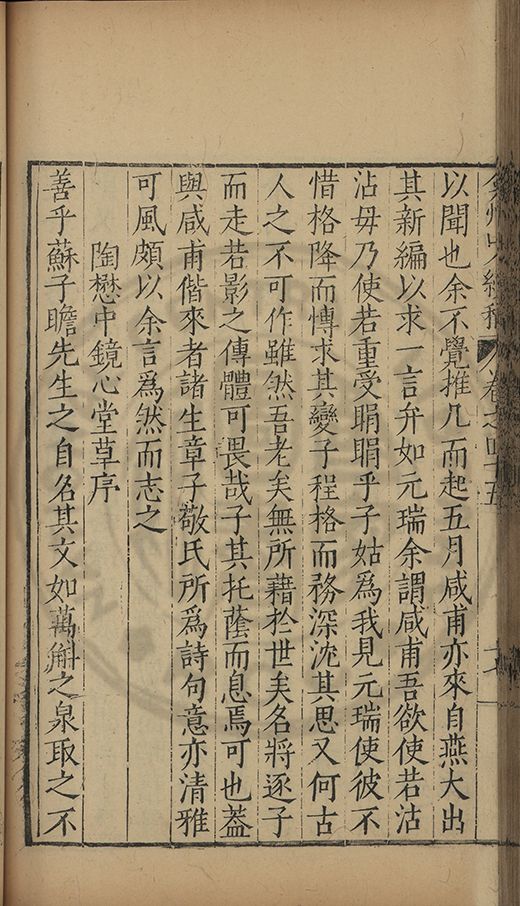 州山人續稿 卷之四十五
以聞也余不覺推几而起五月咸甫亦來自燕大出
其新編以求一言弁如元瑞余謂咸甫吾欲使若沾
沾毋乃使若重受睊睊乎子姑爲我見元瑞使彼不
惜格降而愽求其變子程格而務深沈其思又何古
人之不可作雖然吾老矣無所藉於世矣名將逐子
而走若影之傳體可畏哉子其托蔭而息焉可也蓋
與咸甫偕來者諸生章子敬氏所爲詩句意亦清雅
可風頗以余言爲然而志之
陶懋中鏡心堂草序
善乎蘇子瞻先生之自名其文如萬斛之泉取之不